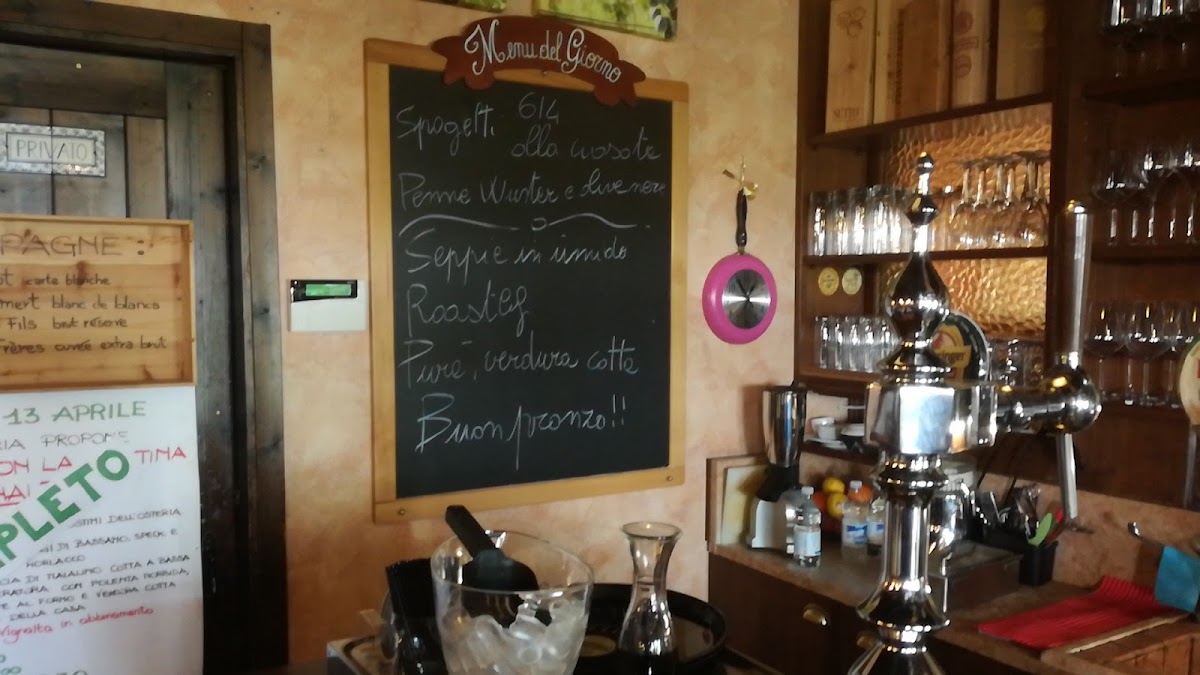 PRIVATO
PAGNE:
ot carte blanche
mert blanc de blancs
Fils brut réserve
Frères cuvée extra brut
13 APRILE
RIA PROPONE
ON LA TINA
PLETO
STIMI DELL'OSTERIA
GI DI BASSANO, SPECK E
MORLACCO
CIA DI MAIALINO COTTA A BASSA
ERATURA CON POLENTA MORBIDA,
E AL FORNO E VERDURA COTTA
DELLA CASA
Vignalta in abbinamento
Menu del Giorno
6/4
Spagetti alla crosata
Penne Wuster e olive nere
Seppie in umido
Roastbef
Purè, verdura cotta
Buon pranzo!!